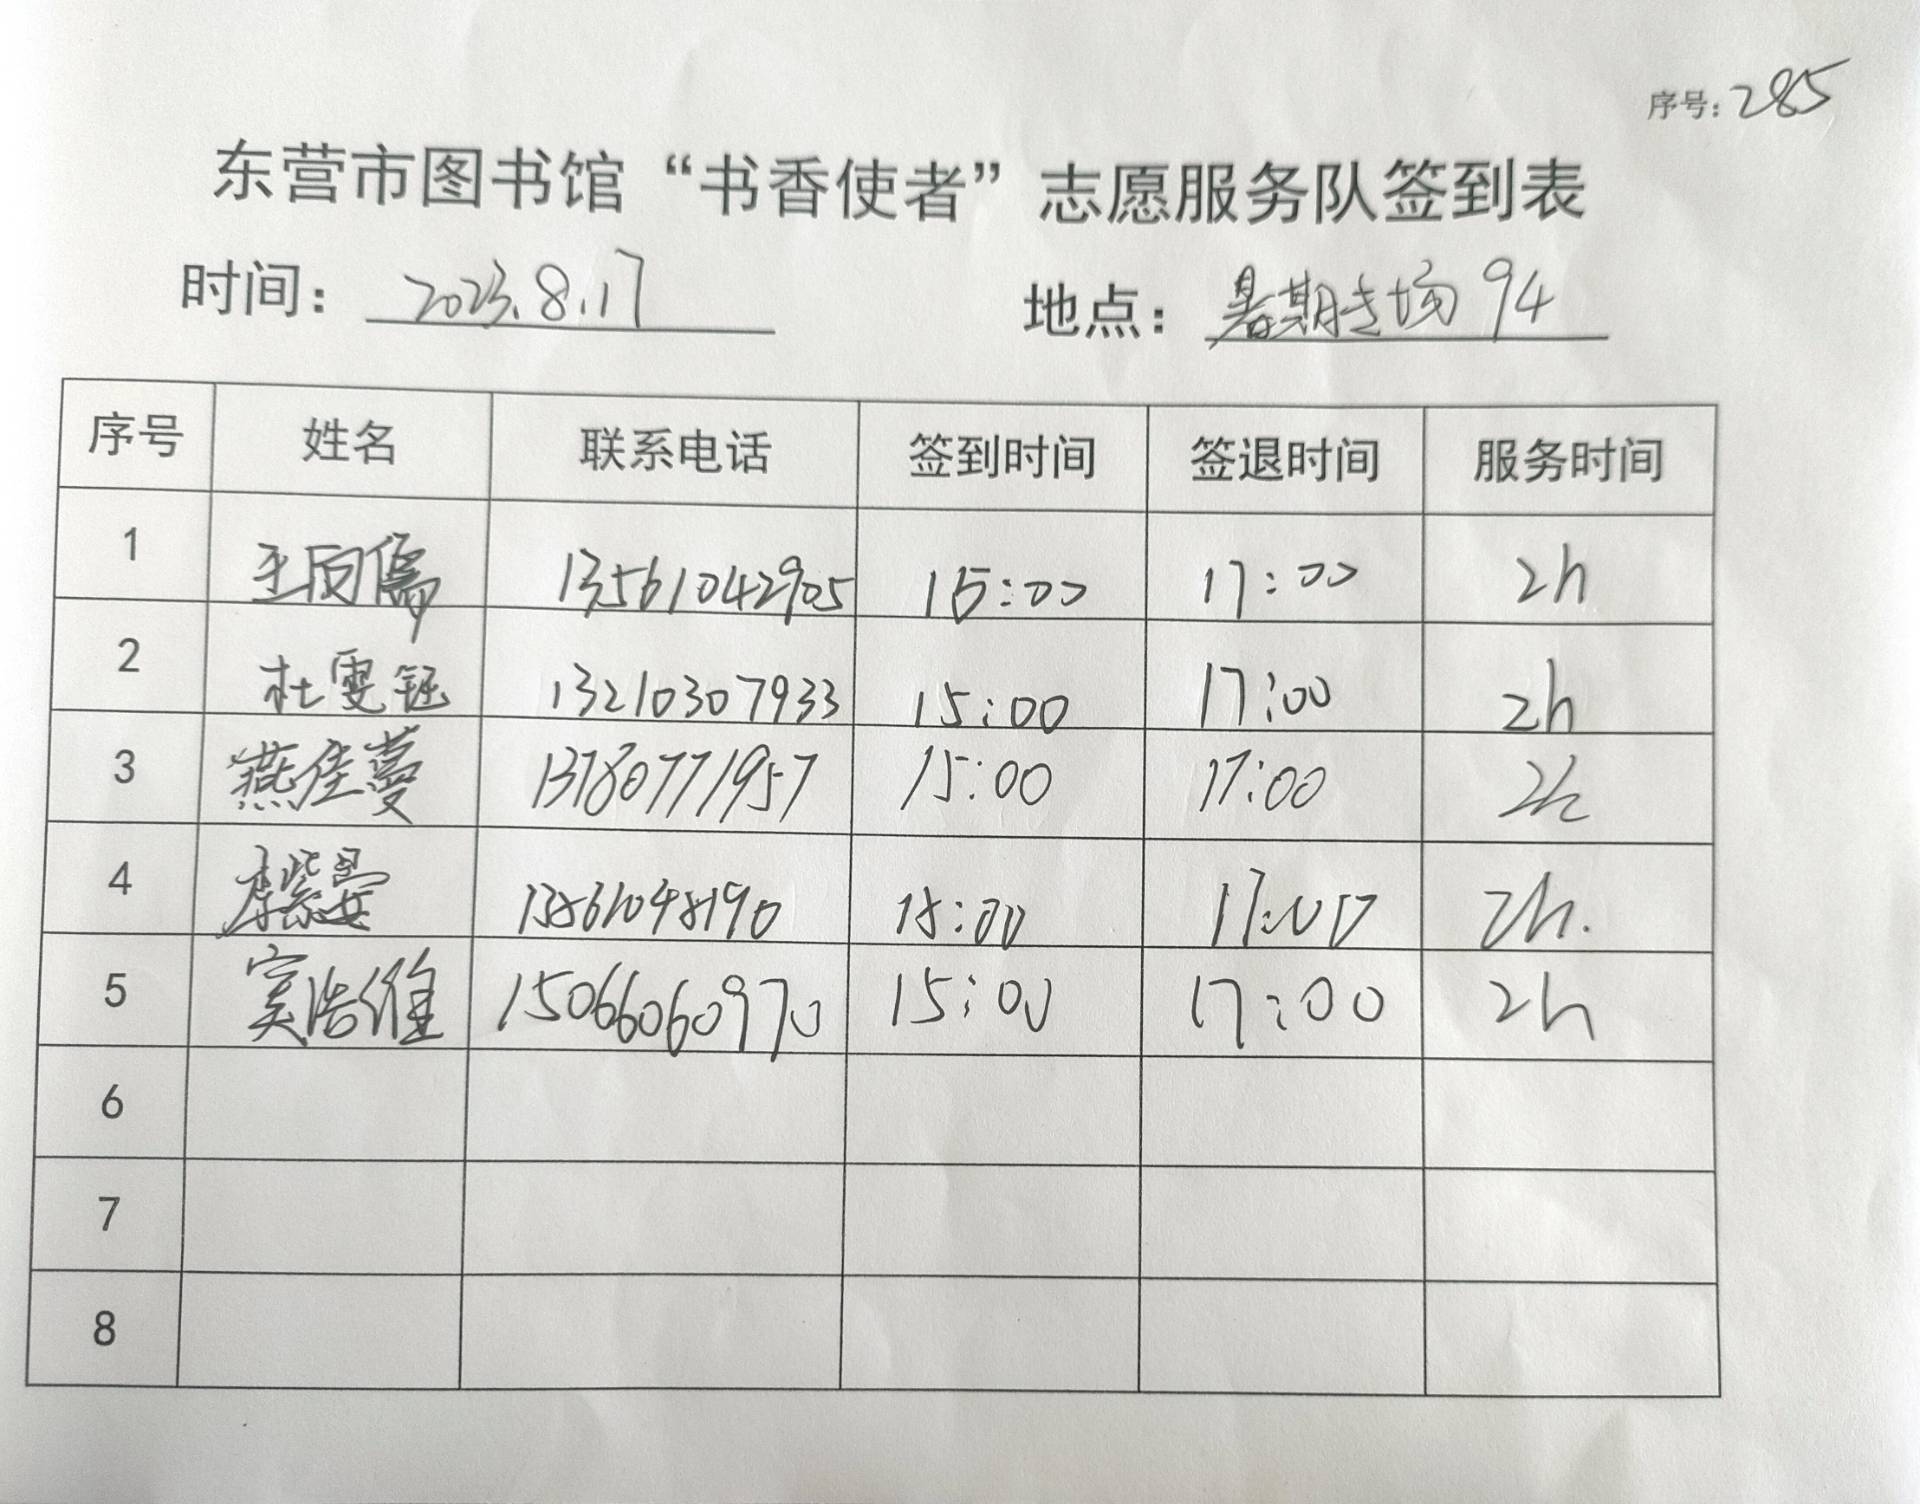 序号：285
东营市图书馆“书香使者”志愿服务队签到表
时间：2023.8.17 地点：暑期专场94
序号 姓名 联系电话 签到时间 签退时间 服务时间
1 王向儒 13561042905 15:00 17:00 2h
2 杜雯钰 13210307933 15:00 17:00 2h
3 燕佳蔓 13780771957 15:00 17:00 2h
4 13561048190 15:00 17:00 2h.
5 窦浩维 15066060970 15:00 17:00 2h
6
7
8